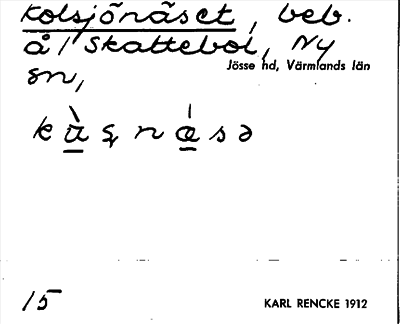 Kolsjönäset, beb.
å/ Skattebol, Ny
sn,
Jösse hd, Värmlands län
15
KARL RENCKE 1912